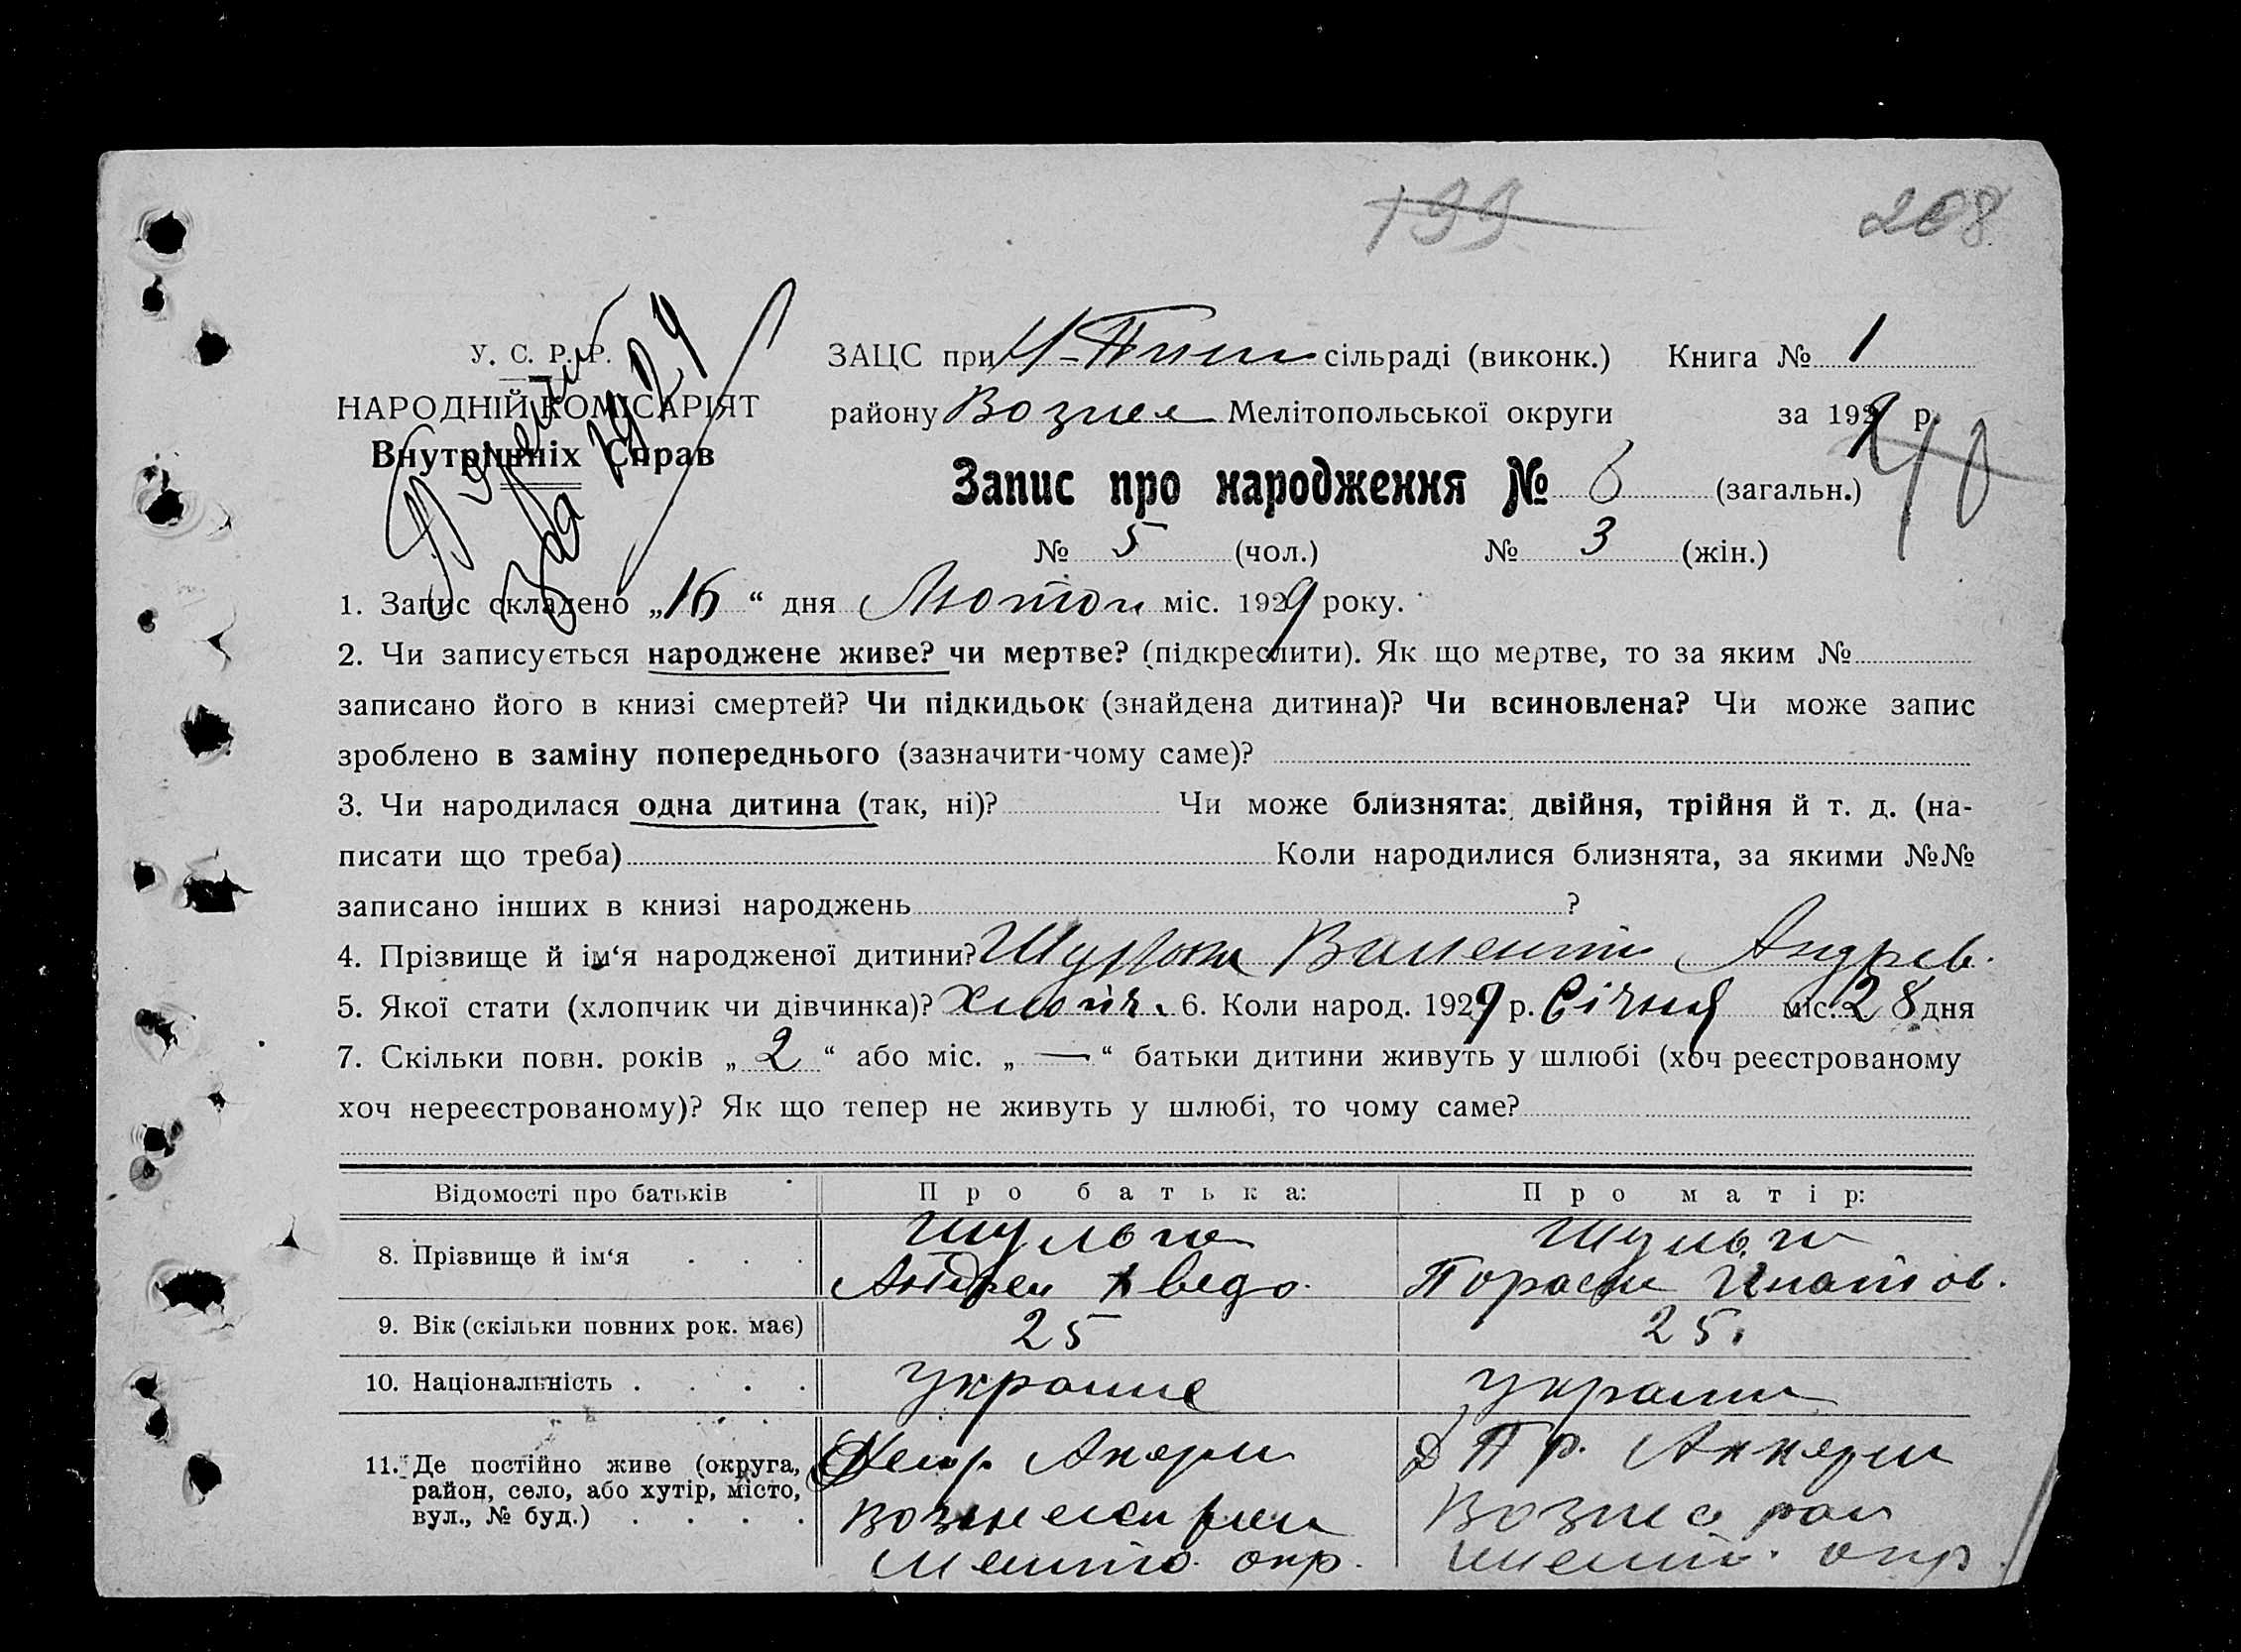 199 208
У. С. Р. Р.
НАРОДНІЙ КОМІСАРІЯТ
Внутрішніх Справ
за 1929
ЗАЦС при сільраді (виконк.) Книга № 1
району Возне Мелітопольської округи за 1929 р.
Запис про народження № 6 (загальн.)
40
№ 5 (чол.) № 3 (жін.)
1. Запис складено „16“ дня Лютого міс. 1929 року.
2. Чи записується народжене живе? чи мертве? (підкреслити). Як що мертве, то за яким №
записано його в книзі смертей? Чи підкидьок (знайдена дитина)? Чи всиновлена? Чи може запис
зроблено в заміну попереднього (зазначити-чому саме)?
3. Чи народилася одна дитина (так, ні)? Чи може близнята: двійня, трійня й т. д. (на-
писати що треба) Коли народилися близнята, за якими №№
записано інших в книзі народжень ?
4. Прізвище й ім‘я народженої дитини? Шульга Валентин Андрев.
5. Якої стати (хлопчик чи дівчинка)? хлопч. 6. Коли народ. 1929 р. Січня міс. 28 дня
7. Скільки повн. років „ 2 “ або міс. „ — “ батьки дитини живуть у шлюбі (хоч реєстрованому
хоч нереєстрованому)? Як що тепер не живуть у шлюбі, то чому саме?
Відомості про батьків Про батька: Про матір:
8. Прізвище й ім‘я . . . Шульга Шульга
Андреи Авдо. Пораска Игнатов.
9. Вік (скільки повних рок. має) 25 25.
10. Національність . . . . Украине Украини
11. Де постійно живе (округа,
район, село, або хутір, місто,
вул., № буд.) . . . .
Мелито. окр. Мелит. окр.